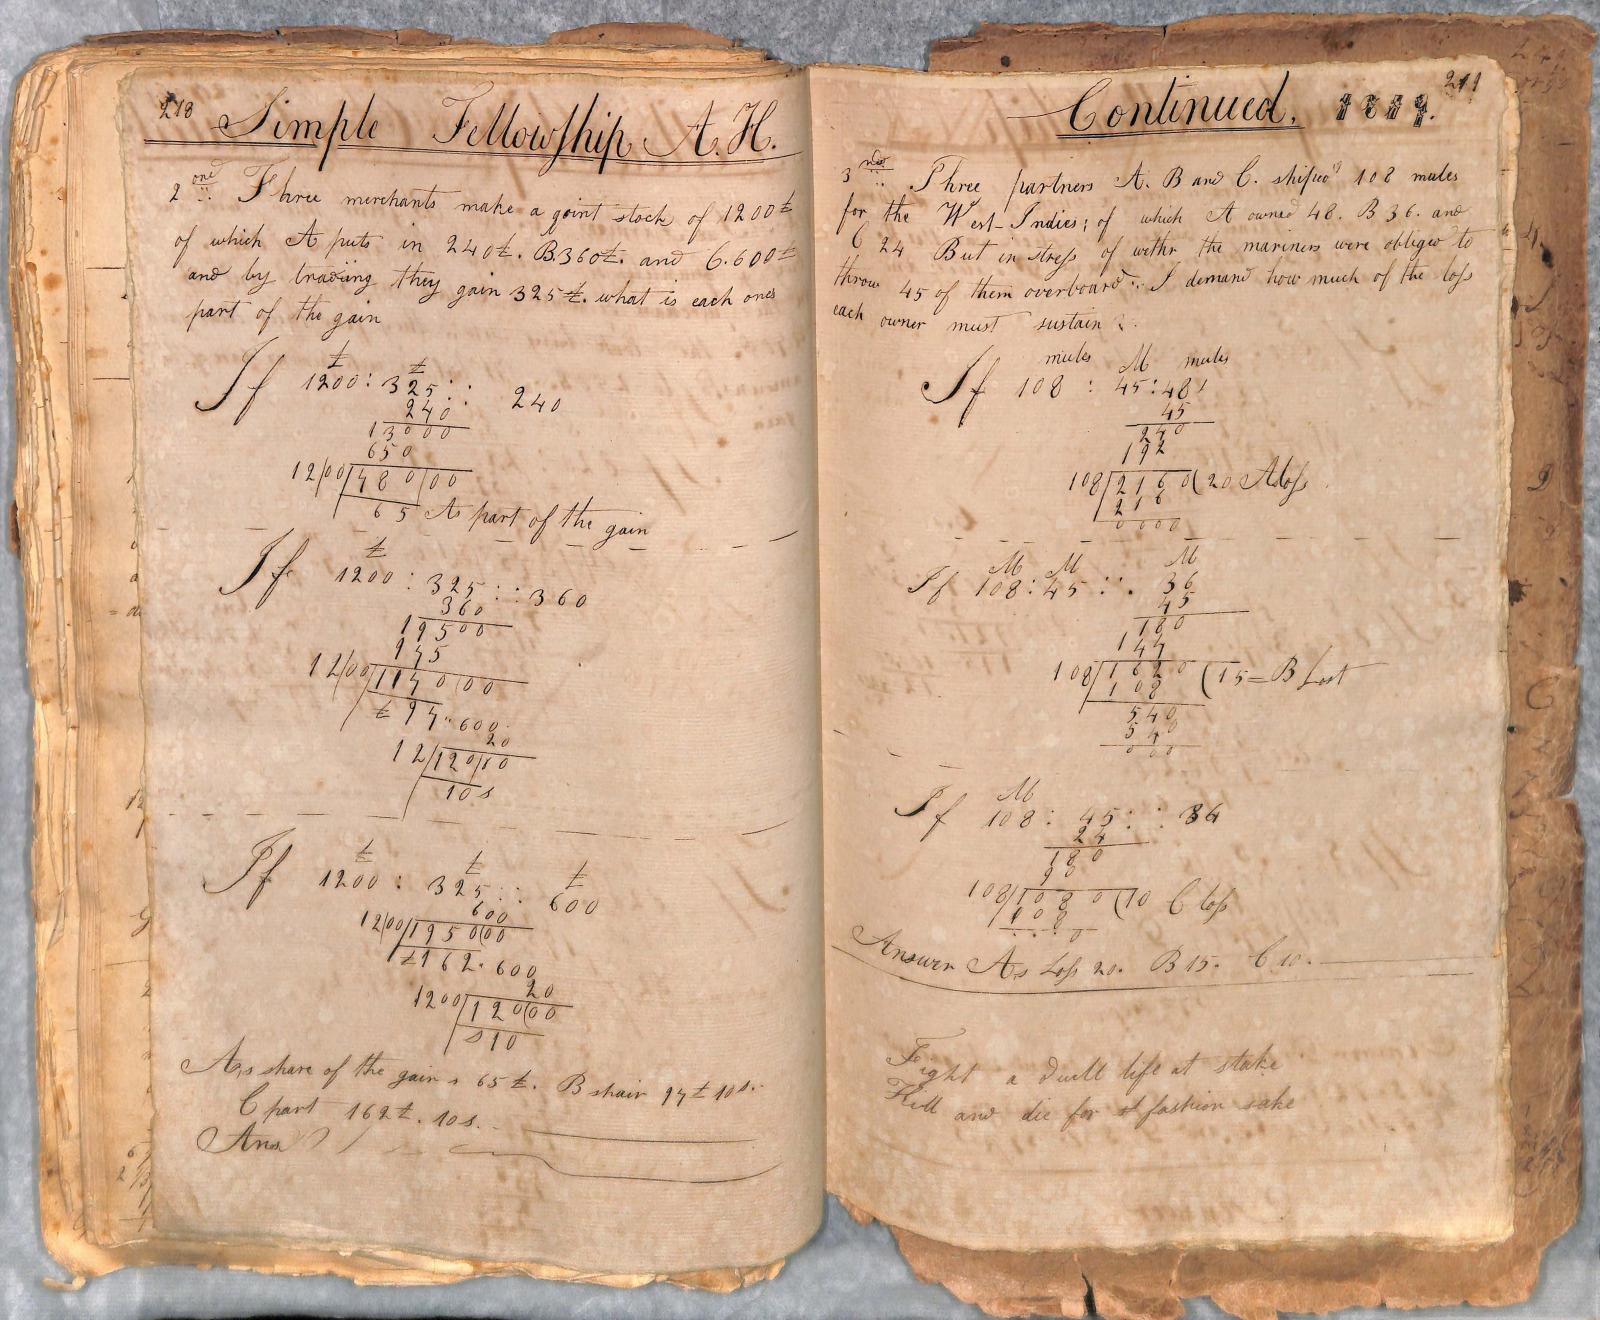 218
Simple Fellowship A. H.
2 ond Three merchants make a goint stock of 1200£
of which A puts in 240£. B.360£. and C.600£
and by trading they gain 325£. what is each ones
part of the gain
£ £
If 1200 : 325 :: 240
240
13000
650
12/00/480/00
65 As part of the gain
£
If 1200 : 325 :: 360
360
19500
975
12/00/1170/00
£ 97 " 600
20
12/120/00
10 s
£ £ £
If 1200 : 325 :: 600
600
12/00/1950/00
£162 . 600
20
1200/120/00
s10
A,s share of the gain s 65£. B shair 97£ 10s.
C part 162£. 10s.
Ans
211
Continued. 1819.
3 Three partners A. B and C. shifted 108 mules
for the West-Indies; of which A owned 48. B 36. and
C 24 But in stress of wethr the mariners were obliged to
throw 45 of them overboard I demand how much of the loss
each owner must sustain ?
mules M mules
If 108 : 45 : 48
45
240
192
108/2160(20 A loss
216
0000
M M M
If 108 : 45 :: 36
45
180
144
108/1620(15 = B Lost
108
540
540
000
M
If 108 : 45 :: 
24
180
90
108/1080(10 C loss
108
0
Answer A,s Loss 20. B 15. C 10.
Fight a duell life at stake
Kill and die for fashion sake